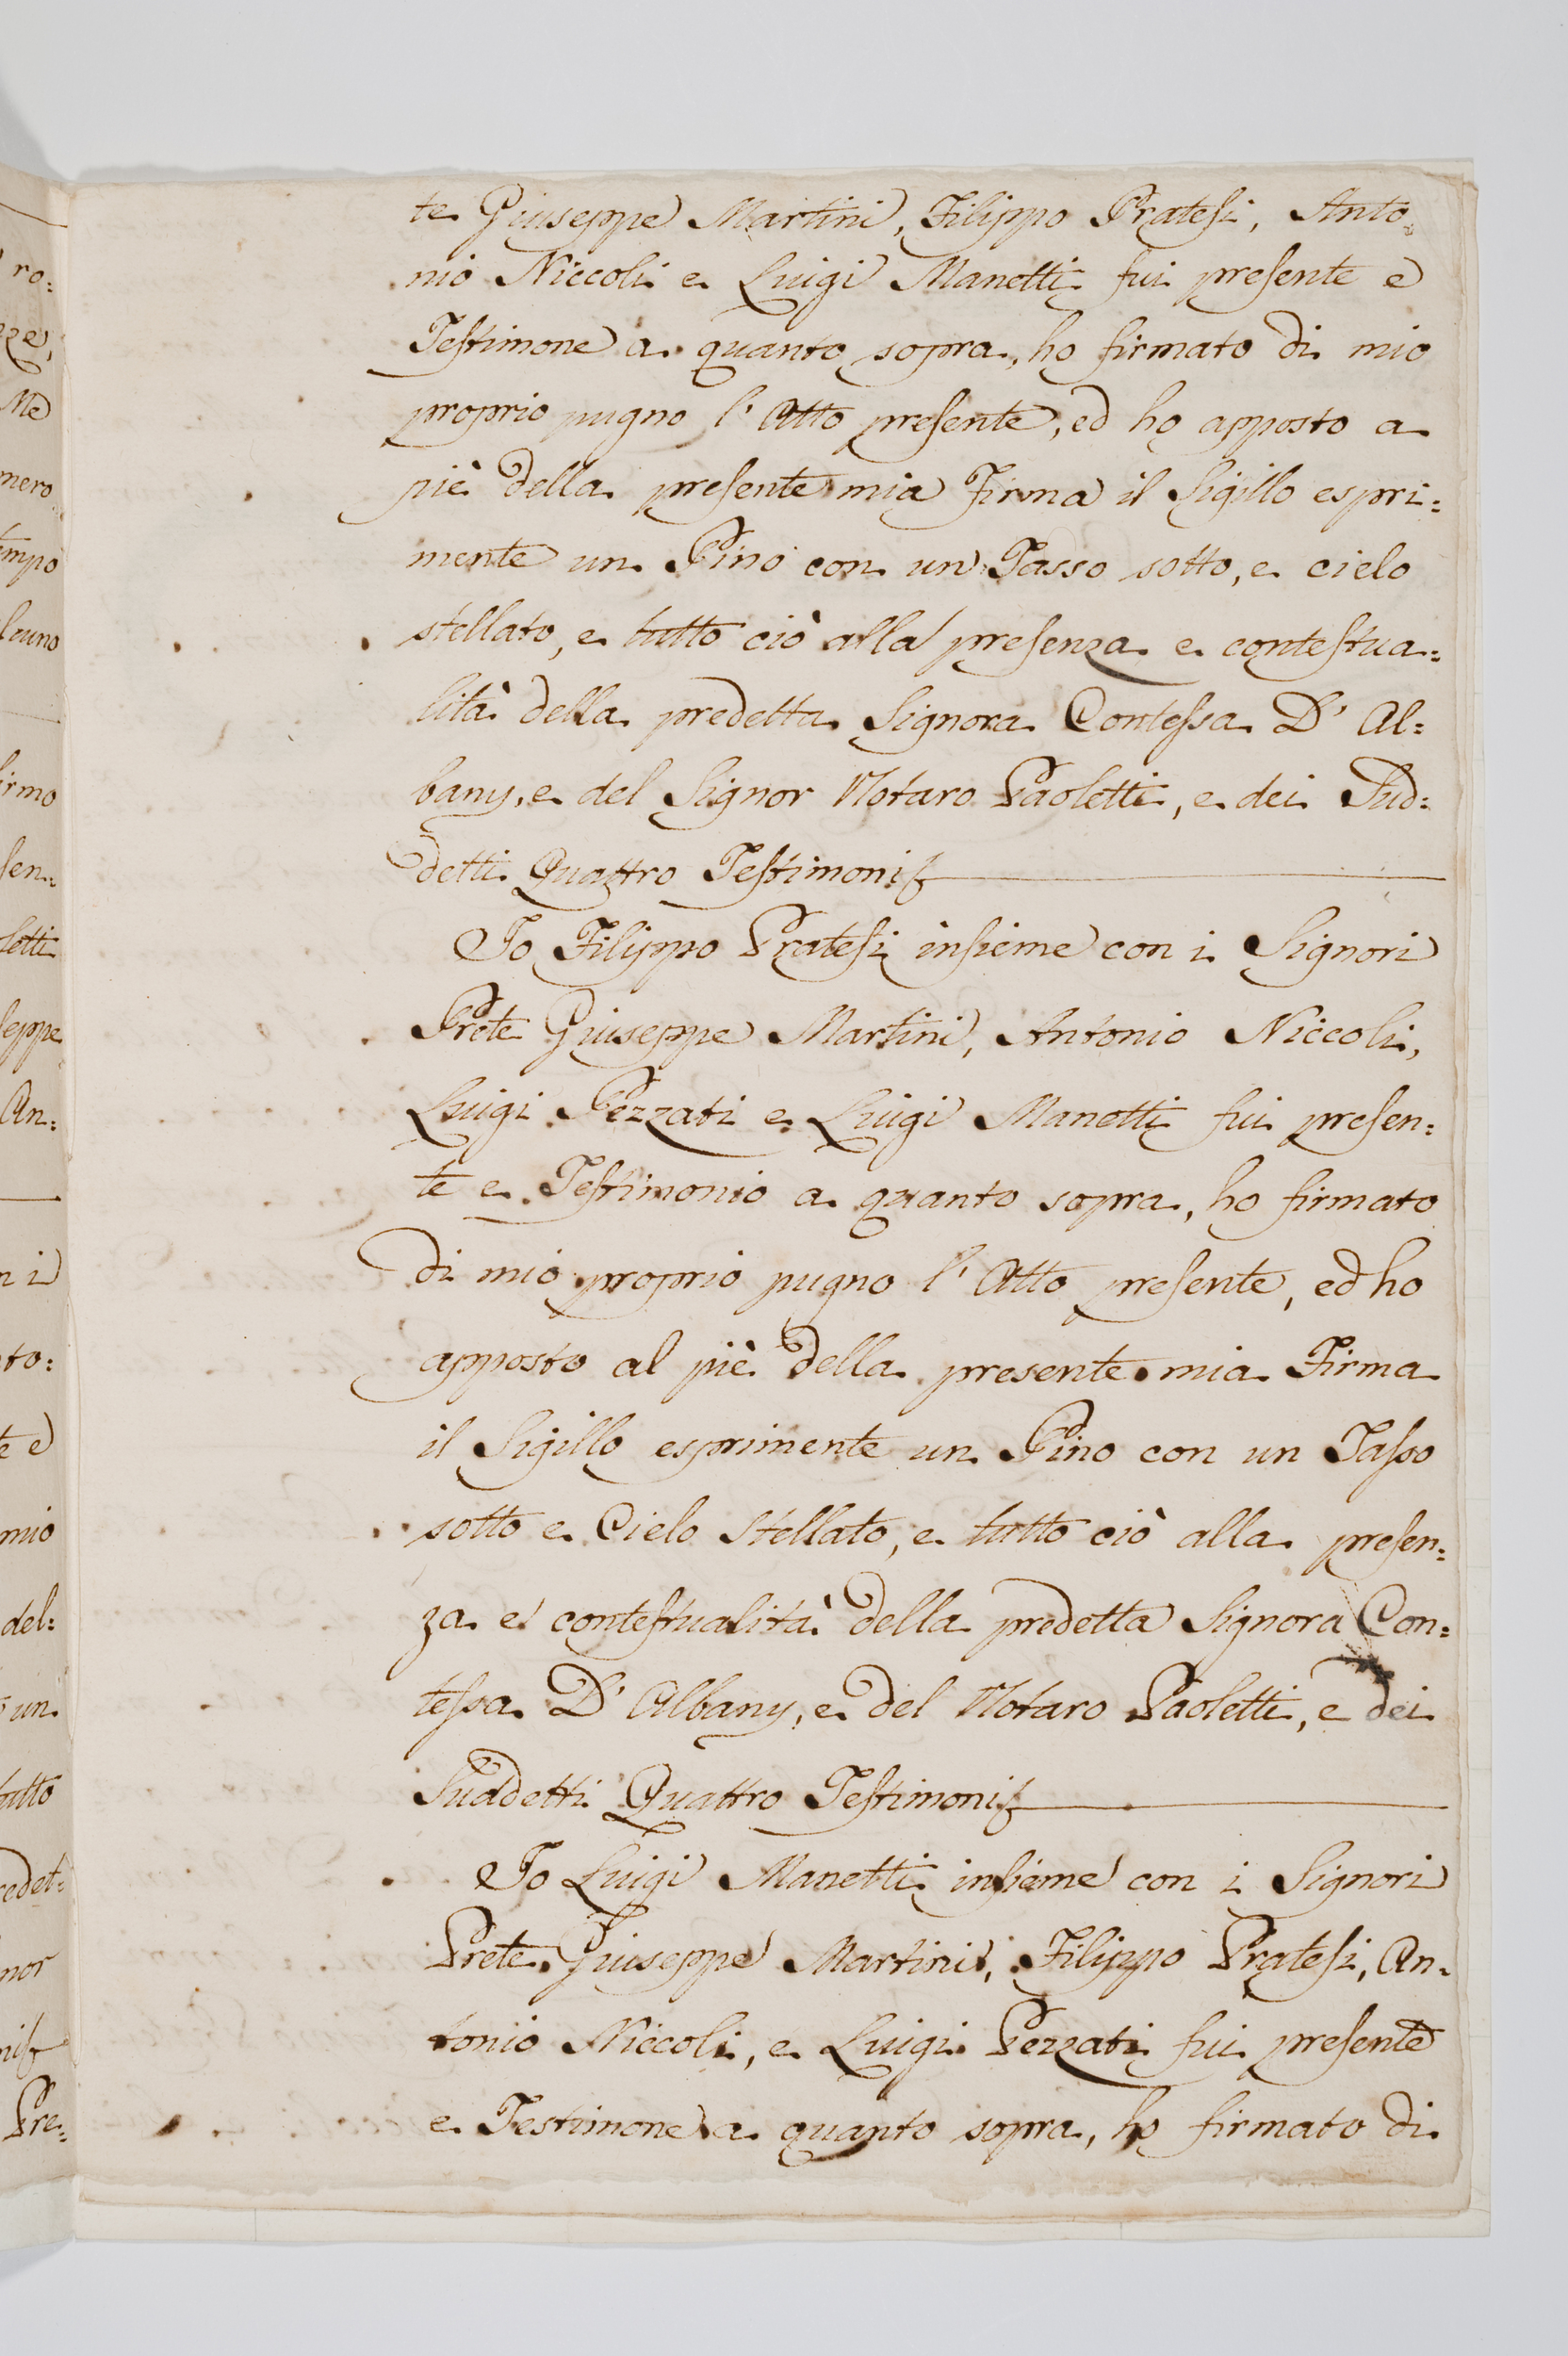 te Giuseppe Martini, Filippo Pratesi, Anto=
nio Niccoli e Luigi Manetti fui presente e
Testimone a quanto sopra, ho firmato di mio
proprio pugno l'Atto presente, ed ho apposto a
piè della presente mia Firma il Sigillo espri=
mente un Pino con un Tasso sotto, e cielo
stellato, e tutto ciò alla presenza e contestua=
lità della predetta Signora Contessa D'Al=
bany, e del Signor Notaro Paoletti, e dei Sud=
detti Quattro Testimonij
Io Filippo Pratesi insieme con i Signori
Prete Giuseppe Martini, Antonio Niccoli,
Luigi Pezzati e Luigi Manetti fui presen=
te e Testimonio a quanto sopra, ho firmato
di mio proprio pugno l'Atto presente, ed ho
apposto al piè della presente mia Firma
il Sigillo esprimente un Pino con un Tasso
sotto e Cielo Stellato, e tutto ciò alla presen=
za e contestualità della predetta Signora Con=
tessa D'Albany, e del Notaro Paoletti, e dei
Suddetti Quattro Testimonij
Io Luigi Manetti insieme con i Signori
Prete Giuseppe Martini, Filippo Pratesi, An=
tonio Niccoli, e Luigi Pezzati fui presente
e Testimone a quanto sopra, ho firmato di